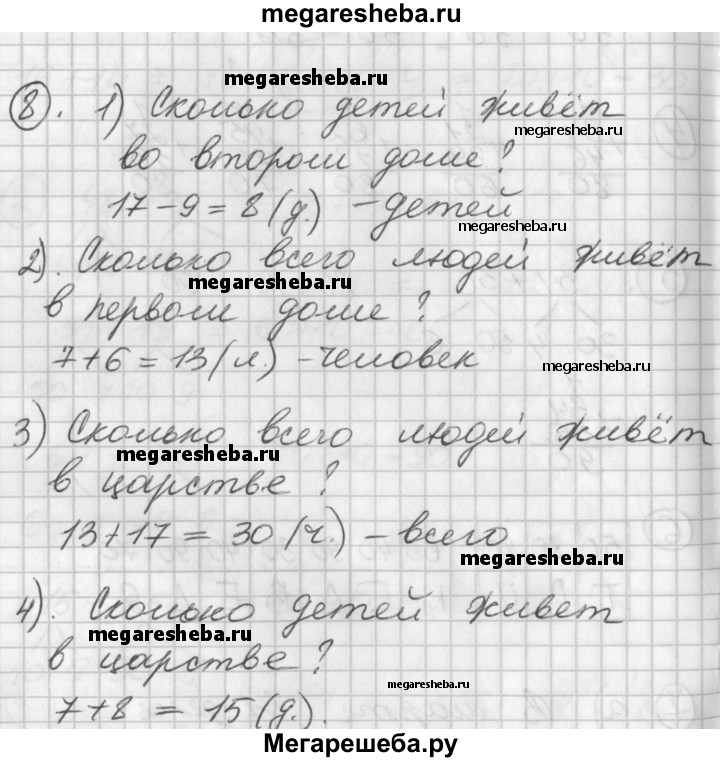 megaresheba.ru
megaresheba.ru
8. 1) Сколько детей живёт
megaresheba.ru
во втором доме?
17 - 9 = 8 (д.) - детей
2). Сколько всего людей живёт
megaresheba.ru
в первом доме?
7 + 6 = 13 (л.) - человек
megaresheba.ru
3) Сколько всего людей живёт
megaresheba.ru
в царстве?
13 + 17 = 30 (ч.) - всего
megaresheba.ru
4). Сколько детей живет
megaresheba.ru
в царстве?
megaresheba.ru
7 + 8 = 15 (д.).
Мегарешеба.ру